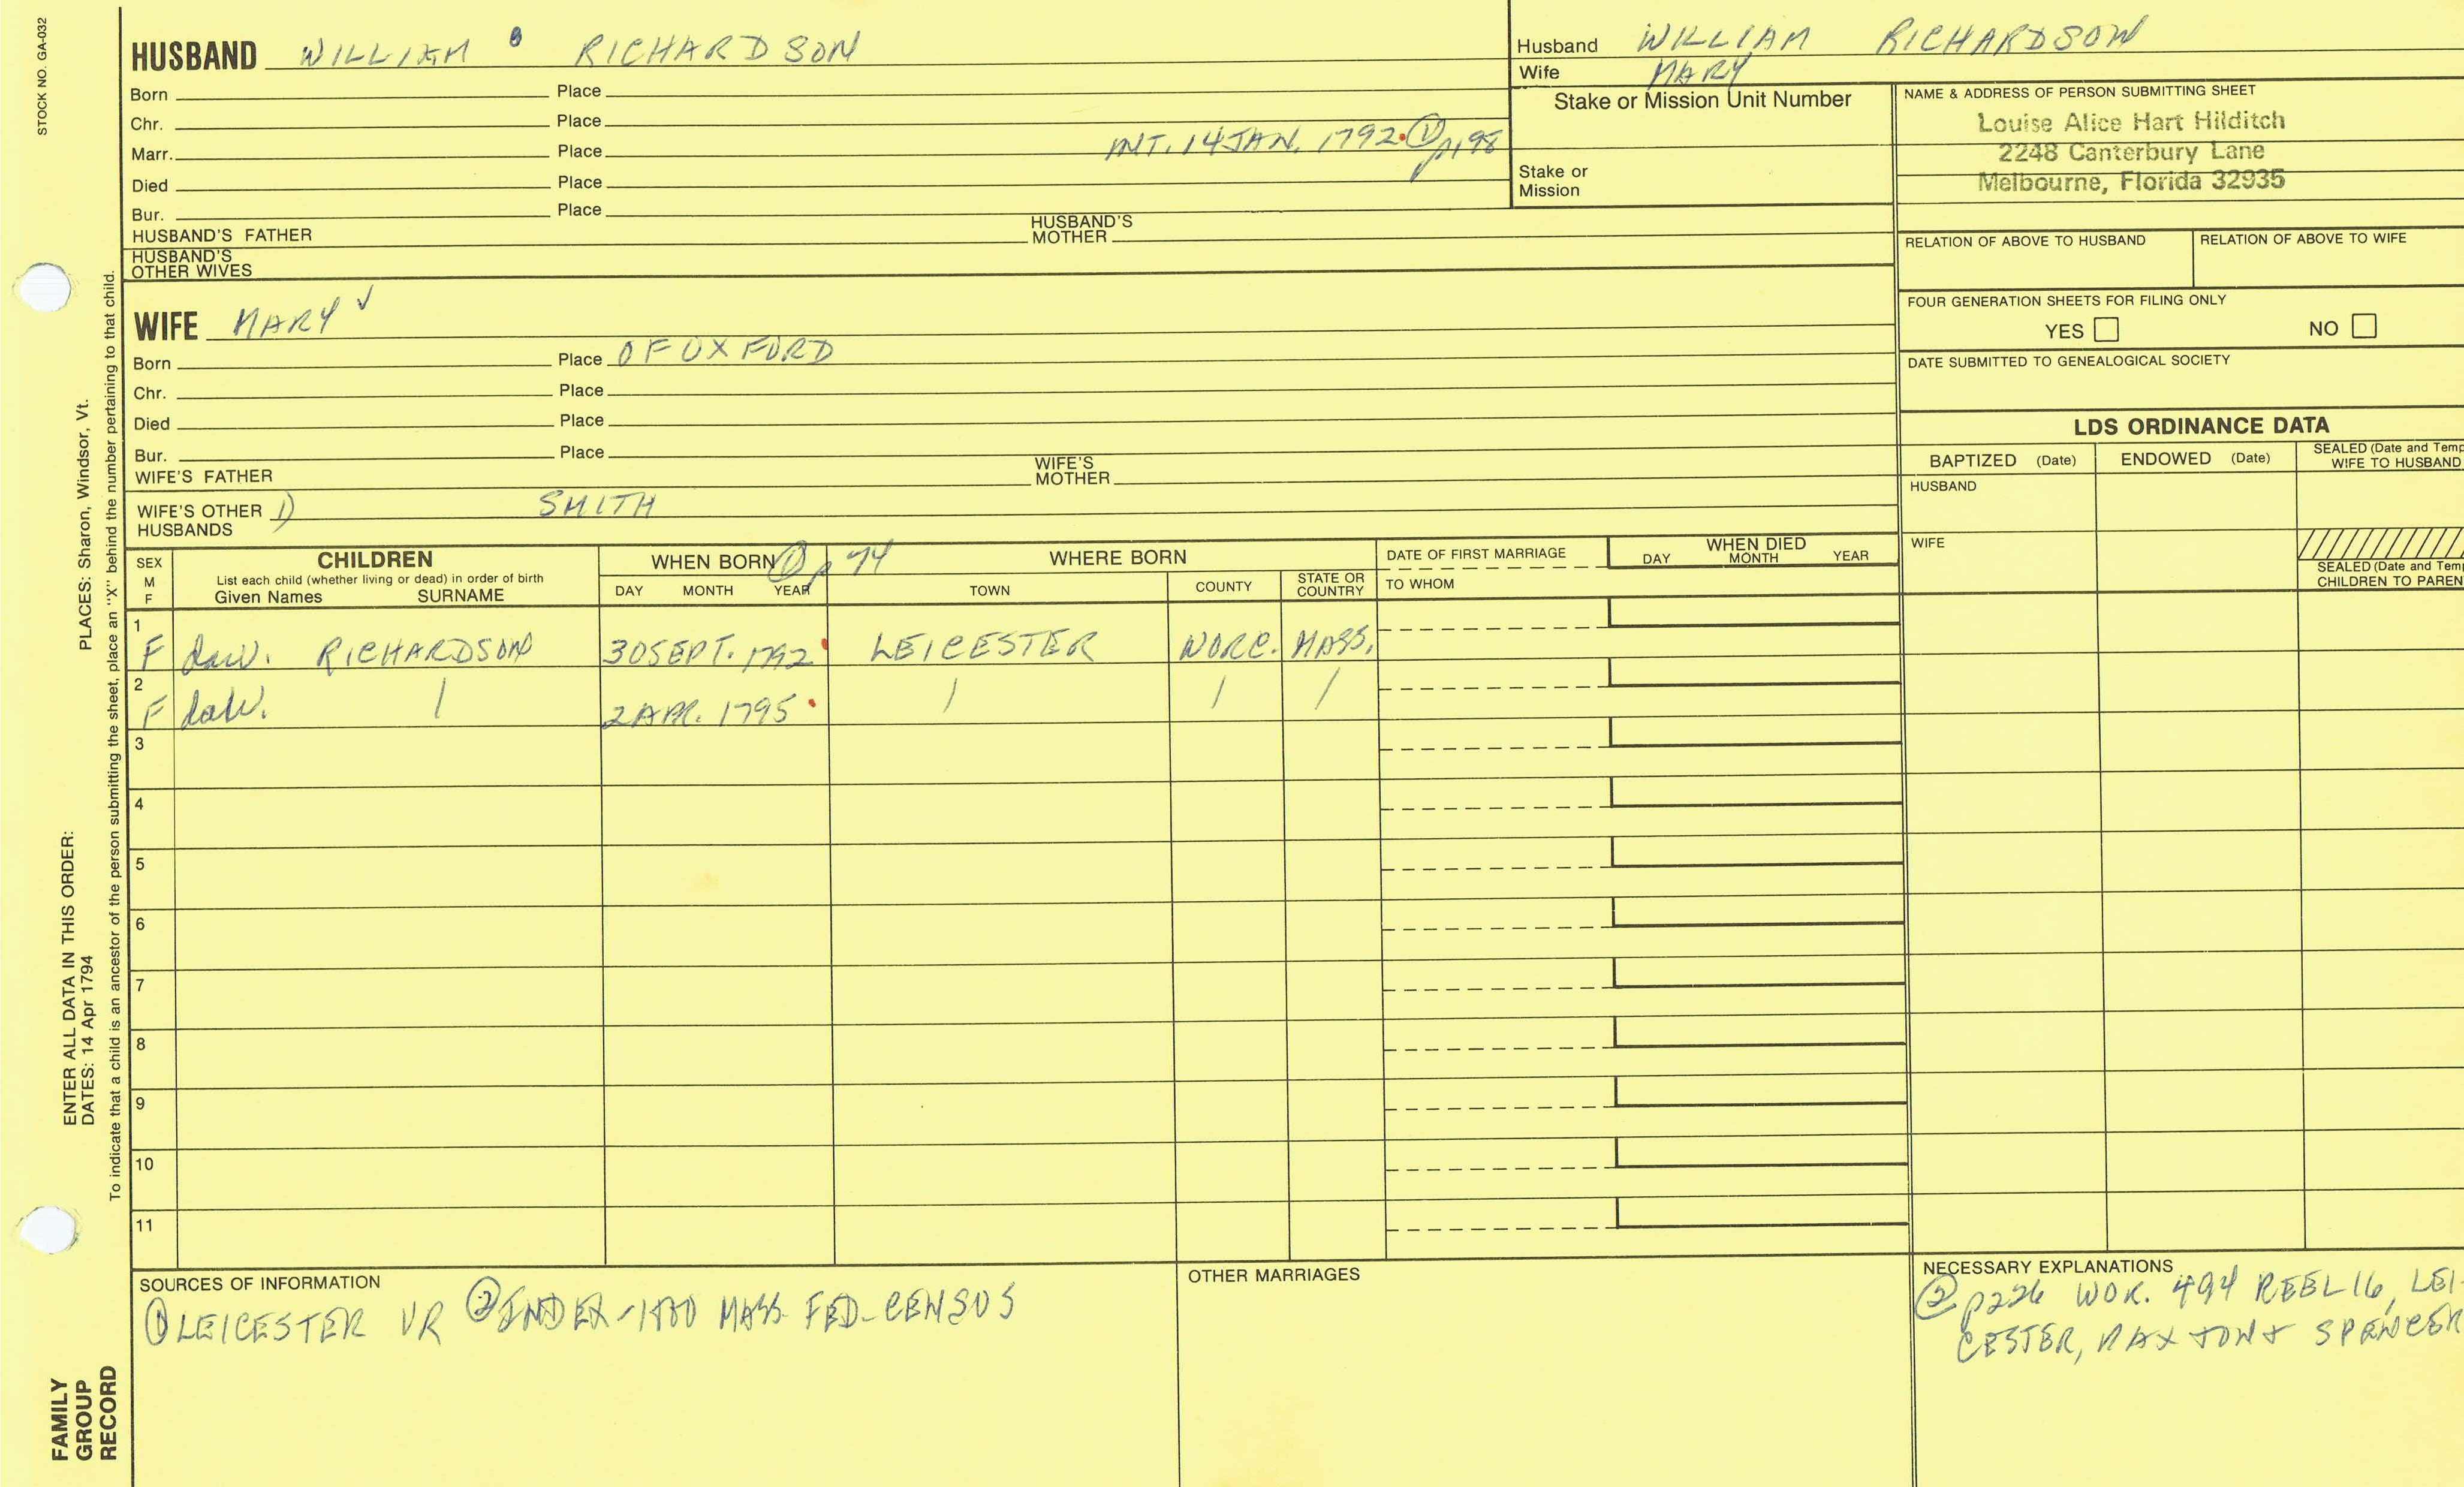 STOCK NO. GA-032
HUSBAND WILLIAM RICHARDSON
Born Place
Chr. Place
Marr. Place INT. 14 JAN. 1792 ① p198
Died Place
Bur. Place
HUSBAND'S FATHER HUSBAND'S MOTHER
HUSBAND'S OTHER WIVES
Husband WILLIAM RICHARDSON
Wife MARY
Stake or Mission Unit Number
Stake or Mission
NAME & ADDRESS OF PERSON SUBMITTING SHEET
Louise Alice Hart Hilditch
2248 Canterbury Lane
Melbourne, Florida 32935
RELATION OF ABOVE TO HUSBAND RELATION OF ABOVE TO WIFE
FOUR GENERATION SHEETS FOR FILING ONLY
YES NO
DATE SUBMITTED TO GENEALOGICAL SOCIETY
WIFE MARY ✓
Born Place OF OXFORD
Chr. Place
Died Place
Bur. Place
WIFE'S FATHER WIFE'S MOTHER
WIFE'S OTHER HUSBANDS 1) SMITH
LDS ORDINANCE DATA
BAPTIZED (Date) ENDOWED (Date) SEALED (Date and Temp
WIFE TO HUSBAND
HUSBAND
WIFE
SEALED (Date and Tem
CHILDREN TO PAREN
SEX M F
CHILDREN
List each child (whether living or dead) in order of birth
Given Names SURNAME
WHEN BORN ① p 74
DAY MONTH YEAR
WHERE BORN
TOWN COUNTY STATE OR COUNTRY
DATE OF FIRST MARRIAGE
TO WHOM
WHEN DIED
DAY MONTH YEAR
1 F dau. RICHARDSON 30 SEPT. 1792 LEICESTER WORC. MASS.
2 F dau. / 2 APR. 1795 / / /
3
4
5
6
7
8
9
10
11
SOURCES OF INFORMATION
① LEICESTER VR ② INDEX-1800 MASS FED-CENSUS
OTHER MARRIAGES
NECESSARY EXPLANATIONS
② p226 WOR. 494 REEL 16, LEI-
CESTER, PAXTON & SPENCER
PLACES: Sharon, Windsor, Vt.
ENTER ALL DATA IN THIS ORDER:
DATES: 14 Apr 1794
To indicate that a child is an ancestor of the person submitting the sheet, place an "X" behind the number pertaining to that child.
FAMILY
GROUP
RECORD